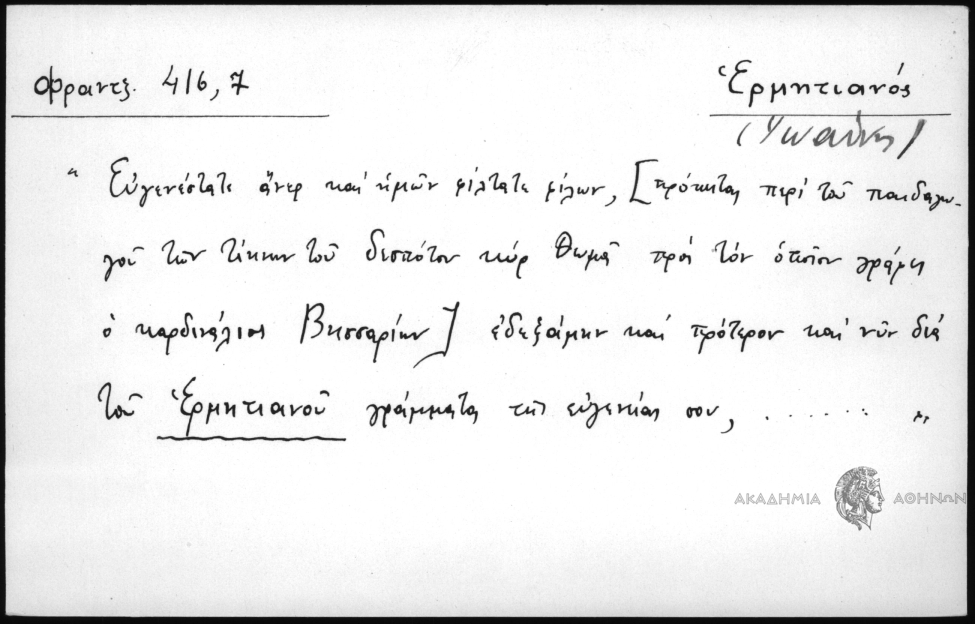 Φραντζ. 416,7
Ἑρμητιανός
(Ἰωάννης)
" Εὐγενέστατε ἄνερ καί ἡμῶν φίλτατε φίλων, [πρόκειται περί τοῦ παιδαγω-
γοῦ τῶν τέκνων τοῦ δεσπότου κύρ Θωμᾶ πρός τόν ὁποῖον γράφει
ὁ καρδινάλιος Βησσαρίων] ἐδεξάμην καί πρότερον καί νῦν διά
τοῦ Ἑρμητιανοῦ γράμματα τῆς εὐγενείας σου, ....... "
ΑΚΑΔΗΜΙΑ ΑΘΗΝΩΝ